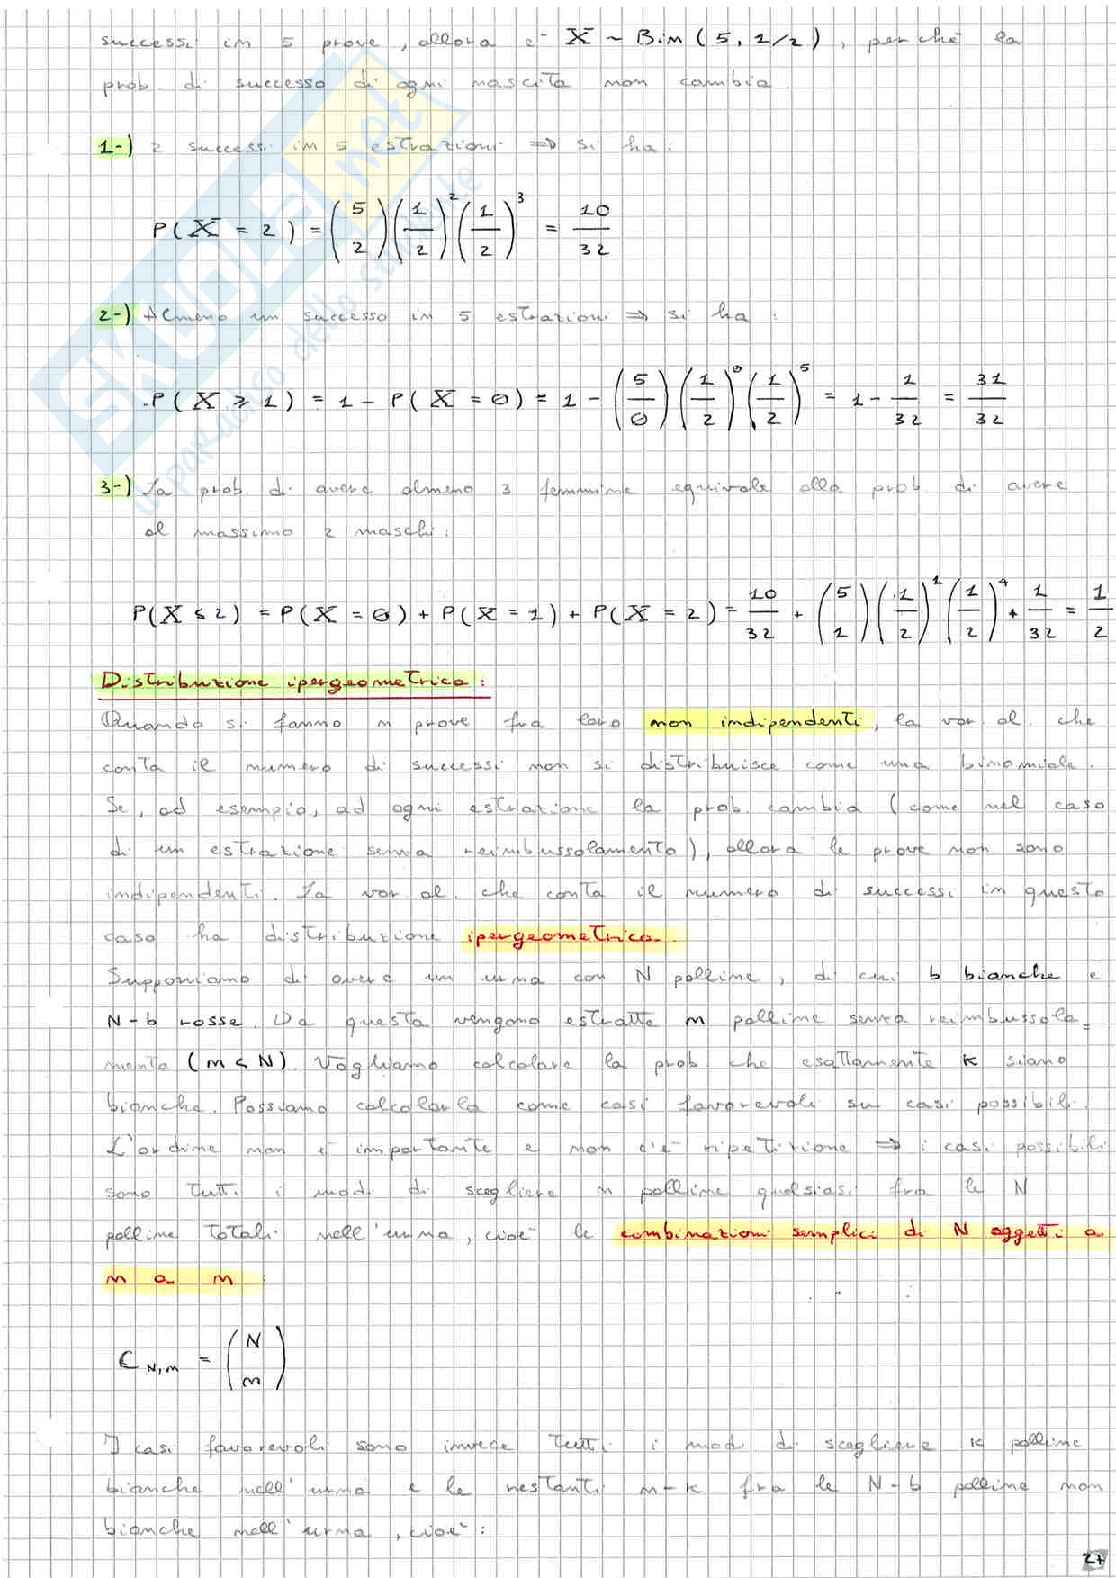 successi in 5 prove, allora è X ~ Bin (5, 1/2), perché la
prob. di successo di ogni nascita non cambia
1-) 2 successi in 5 estrazioni ⇒ si ha:
P(X = 2) = (5 2) (1/2)^2 (1/2)^3 = 10/32
2-) Almeno un successo in 5 estrazioni ⇒ si ha:
P(X ≥ 1) = 1 - P(X = 0) = 1 - (5/0) (1/2)^0 (1/2)^5 = 1 - 1/32 = 31/32
3-) La prob di avere almeno 3 femmine equivale alla prob. di avere
al massimo 2 maschi:
P(X ≤ 2) = P(X = 0) + P(X = 1) + P(X = 2) = 10/32 + (5 1) (1/2)^1 (1/2)^4 + 1/32 = 1/2
Distribuzione ipergeometrica:
Quando si fanno n prove fra loro non indipendenti, la var al che
conta il numero di successi non si distribuisce come una binomiale.
Se, ad esempio, ad ogni estrazione la prob cambia (come nel caso
di un estrazione senza reimbussolamento), allora le prove non sono
indipendenti. La var al. che conta il numero di successi in questo
caso ha distribuzione ipergeometrica.
Supponiamo di avere un urna con N palline, di cui b bianche e
N-b rosse. Da questa vengono estratte n palline senza reimbussola=
mento (n < N). Vogliamo calcolare la prob che esattamente k siano
bianche. Possiamo calcolarla come casi favorevoli su casi possibili.
L'ordine non è importante e non c'è ripetizione ⇒ i casi possibili
sono tutti i modi di scegliere n palline qualsiasi fra le N
palline totali nell'urna, cioè le combinazioni semplici di N oggetti a
n a n:
C N,n = (N n)
I casi favorevoli sono invece tutti i modi di scegliere k palline
bianche nell'urna e le restanti n-k fra le N-b palline non
bianche nell'urna, cioè:
27
SKUOLA.net
il paradiso dello studente